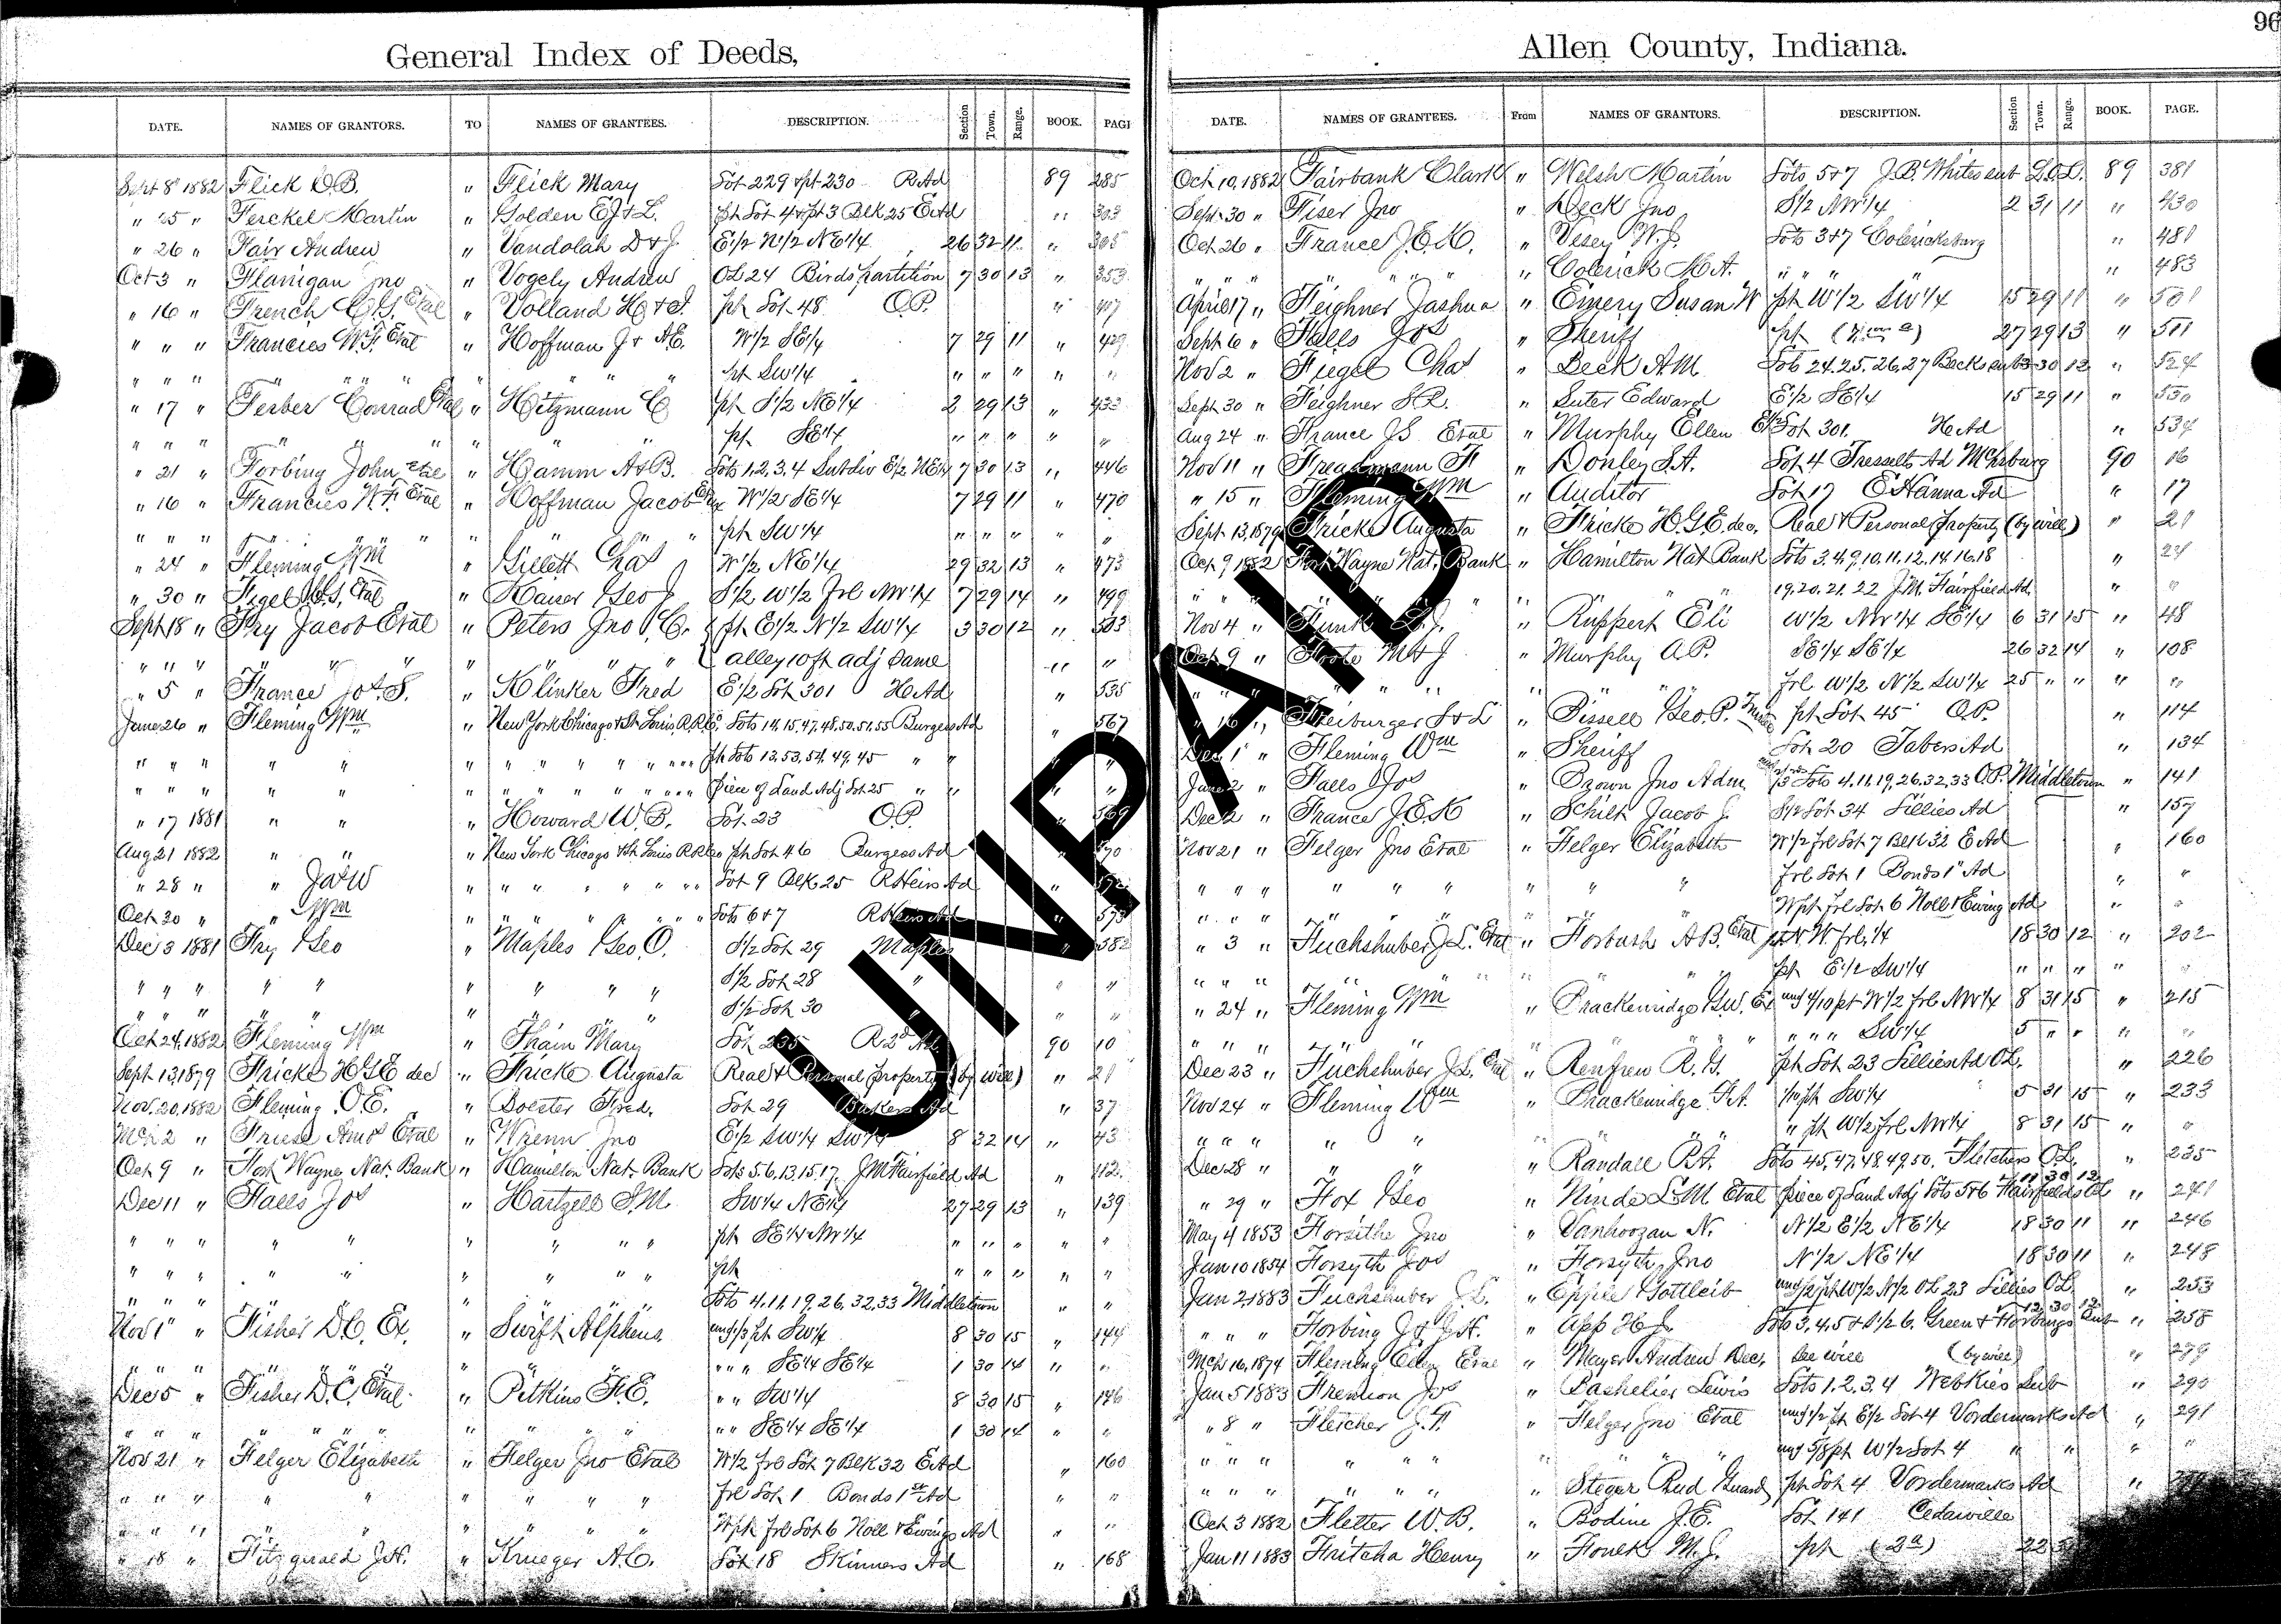 96
General Index of Deeds,
DATE. NAMES OF GRANTORS. TO NAMES OF GRANTEES. DESCRIPTION. Section Town. Range. BOOK. PAGE
Sept 8 1882 Flick D.B. " Flick Mary Lot 229 & pt 230 R Ad 89 285
" 25 " Ferckel Martin " Golden E.J & L. pt Lot 4 & pt 3 Blk 25 E Ad " 303
" 26 " Fair Andrew " Vandolah D & J. E 1/2 N 1/2 NE 1/4 26 32 11 " 305
Oct 3 " Flanigan Jno " Vogely Andrew OL 24 Birds partition 7 30 13 " 353
" 16 " French C.G. Etal " Volland H & J. pt Lot 48 O.P. " 407
" " " Francies W.F. Etal " Hoffman J & A.E. W 1/2 SE 1/4 7 29 11 " 429
" " " " " " " " " " pt SW 1/4 " " " " "
" 17 " Ferber Conrad Etal " Hitzmann C pt S 1/2 NE 1/4 2 29 13 " 433
" " " " " " " " pt SE 1/4 " " " " "
" 21 " Forbing John Etal " Hamm A & B. Lots 1,2,3,4 Subdiv E 1/2 NE 1/4 7 30 13 " 446
" 16 " Francies W.F. Etal " Hoffman Jacob Etux W 1/2 SE 1/4 7 29 11 " 470
" " " " " " " " " pt SW 1/4 " " " " "
" 24 " Fleming Wm " Gillett Chas W 1/2 NE 1/4 29 32 13 " 473
" 30 " Figel J.G. Etal " Kaiser Geo J S 1/2 W 1/2 frl NW 1/4 7 29 14 " 499
Sept 18 " Fry Jacob Etal " Peters Jno C. pt E 1/2 N 1/2 SW 1/4 3 30 12 " 503
" " " " " " " " " " alley 10 ft adj Same " "
" 5 " France Jos. S. " Klinker Fred E 1/2 Lot 301 H Ad " 535
June 26 " Fleming Wm " New York Chicago & St Louis R.R. Co Lots 14,15,47,48,50,51,55 Burgess Ad " 567
" " " " " " " " " " " " " pt Lots 13,53,54,49,45 " " " "
" " " " " " " " " " " " " piece of Land Adj Lot 25 " " " "
" 17 1881 " " " Howard W.B. Lot 23 O.P. " 569
Aug 21 1882 " " " New York Chicago & St Louis R.R. Co pt Lot 46 Burgess Ad
" 28 " " Jas W " " " " " " " Lot 9 Blk 25 R Heirs Ad " 572
Oct 30 " " Wm " " " " " " " Lots 6 & 7 R Heirs Ad " 573
Dec 3 1881 Fry Geo " Maples Geo. O. S 1/2 Lot 29 Maples " 582
" " " " " " " " " S 1/2 Lot 28 " " "
" " " " " " " " " S 1/2 Lot 30 " " "
Oct 24, 1882 Fleming Wm " Thain Mary Lot 235 R 2d Ad. 90 10
Sept 13 1879 Fricke H.G.E dec " Fricke Augusta Real & Personal property (by will) " 21
Nov. 20, 1882 Fleming O.E. " Doester Fred. Lot 29 Bakers Ad " 37
Mch 2 " Friese Amos Etal " Wrenn Jno E 1/2 SW 1/4 SW 1/4 8 32 14 " 43
Oct 9 " Fort Wayne Nat. Bank " Hamilton Nat. Bank Lots 5,6,13,15,17, J.M. Fairfield Ad " 112
Dec 11 " Falls Jos " Hartzell S.M. SW 1/4 NE 1/4 27 29 13 " 139
" " " " " " " " " pt SE 1/4 NW 1/4 " " " " "
" " " " " " " " " pt " " " " "
" " " " " " " " " Lots 4,11,19,26,32,33 Middletown " "
Nov 1 " Fisher D.C. Ex. " Swift Alpheus und 1/3 pt SW 1/4 8 30 15 " 144
" " " " " " " " " " " " SE 1/4 SE 1/4 1 30 14 " "
Dec 5 " Fisher D.C. Etal " Pitkins F.E. " " SW 1/4 8 30 15 " 146
" " " " " " " " " " " " SE 1/4 SE 1/4 1 30 14 " "
Nov 21 " Felger Elizabeth " Felger Jno Etal W 1/2 frl Lot 7 Blk 32 E Ad " 160
" " " " " " " " " frl Lot 1 Bonds 1st Ad " "
" " " " " " " " " W pt frl Lot 6 Noll & Ewings Ad " "
" 18 " Fitzgerald J.H. " Krueger A.C. Lot 18 Skinners Ad " 168
Allen County, Indiana.
DATE. NAMES OF GRANTEES. From NAMES OF GRANTORS. DESCRIPTION. Section Town. Range. BOOK. PAGE.
Oct 10, 1882 Fairbank Clark " Welsh Martin Lots 5 & 7 J.B. Whites sub L.O.L. 89 381
Sept 30 " Fiser Jno " Deck Jno S 1/2 NW 1/4 2 31 11 " 430
Oct 26 " France J.E.K. " Vesey W.J. Lots 3 & 7 Colericksburg " 481
" " " " " " " " Colerick M.A. " " " " 483
April 17 " Feighner Jashua " Emery Susan W pt W 1/2 SW 1/4 15 29 11 " 501
Sept 6 " Falls Jos " Sheriff pt 27 29 13 " 511
Nov 2 " Fiegel Chas " Beck A.M. Lots 24,25,26,27 Becks sub 3 30 12 " 524
Sept 30 " Feighner S.R. " Suter Edward E 1/2 SE 1/4 15 29 11 " 530
Aug 24 " France J.S Etal " Murphy Ellen E 1/2 Lot 301. H Ad " 534
Nov 11 " Freadmann F " Donley S.A. Lot 4 Tresselts Ad Mchsburg 90 16
" 15 " Fleming Wm " Auditor Lot 17 E Hanna Ad " 17
Sept. 13, 1879 Fricke Augusta " Fricke H.G.E. dec, Real & Personal property (by will) " 21
Oct 9 1882 Fort Wayne Nat. Bank " Hamilton Nat Bank Lots 3,4,9,10,11,12,14,16,18 " 24
" " " " " " " " 19,20,21,22 J.M. Fairfield Ad. " "
Nov 4 " Funk E.J. " Ruppert Eli W 1/2 NW 1/4 SE 1/4 6 31 15 " 48
Oct 9 " Foote M & J " Murphy A.P. SE 1/4 SE 1/4 26 32 14 " 108
" " " " " " " " " frl W 1/2 N 1/2 SW 1/4 25 " " " "
" 16 " Freiburger S & L " Bissell Geo. P. Trustee pt Lot 45 O.P. " 114
Dec 1 " Fleming Wm " Sheriff Lot 20 Tabers Ad " 134
June 2 " Falls Jos " Brown Jno Adm Lots 4,11,19,26,32,33 O.P. Middletown " 141
Dec 2 " France J.E.K " Schilt Jacob J. S 1/2 Lot 34 Lillies Ad " 157
Nov 21 " Felger Jno Etal " Felger Elizabeth W 1/2 frl Lot 7 Blk 32 E Ad " 160
" " " " " " " " " frl Lot 1 Bonds 1st Ad " "
" " " " " " " " " W pt frl Lot 6 Noll & Ewing Ad " "
" 3 " Fuchshuber J.L. Etal " Forbush A.B. Etal pt N.W. frl 1/4 18 30 12 " 202
" " " " " " " " pt E 1/2 SW 1/4 " " " " "
" 24 " Fleming Wm " Brackenridge G.W. Ex und 4/10 pt W 1/2 frl NW 1/4 8 31 15 " 215
" " " " " " " " " " " SW 1/4 5 " " " "
Dec 23 " Fuchshuber J.L. Etal " Renfrew R.G. pt Lot 23 Lillies Ad O.L. " 226
Nov 24 " Fleming Wm " Brackenridge R.A. 1/10 pt SW 1/4 5 31 15 " 233
" " " " " " " " " pt W 1/2 frl NW 1/4 8 31 15 " "
Dec 28 " " " " Randall P.A. Lots 45,47,48,49,50, Fletchers O.L. " 235
" 29 " Fox Geo " Ninde L.M Etal piece of Land Adj Lots 5 & 6 Fairfields OL 11 30 12 " 241
May 4 1853 Forsithe Jno " Vanhoozan N. N 1/2 E 1/2 NE 1/4 18 30 11 " 246
Jan 10 1854 Forsyth Jos " Forsyth Jno N 1/2 NE 1/4 18 30 11 " 248
Jan 2, 1883 Fuchshuber J.L. " Epple Gottleib und 1/2 pt W 1/2 N 1/2 OL 23 Lillies OL " 253
" " " Forbing J & J.H. " App H J. Lots 3,4,5 & S 1/2 6. Green & Forbings Sub 12 30 12 " 258
Mch 16, 1874 Fleming Ellen Etal " Mayer Andrew Dec, See will (by will) " 279
Jan 5 1883 Fremion Jos " Bashelier Lewis Lots 1,2,3,4 Sub " 290
" 8 " Fletcher J.F. " Felger Jno Etal und 1/2 pt E 1/2 Lot 4 Vordermarks Ad " 291
" " " " " " " " " und 5/8 pt W 1/2 Lot 4 " " " "
" " " " " " " Steger Rud Guard pt Lot 4 Vordermarks Ad "
Oct 3 1882 Fletter W.B. " Bodine J.E. Lot 141 Cedarville
Jan 11 1883 Fritcha Henry " Fonck M.J. pt (2a) 22
UNPAID